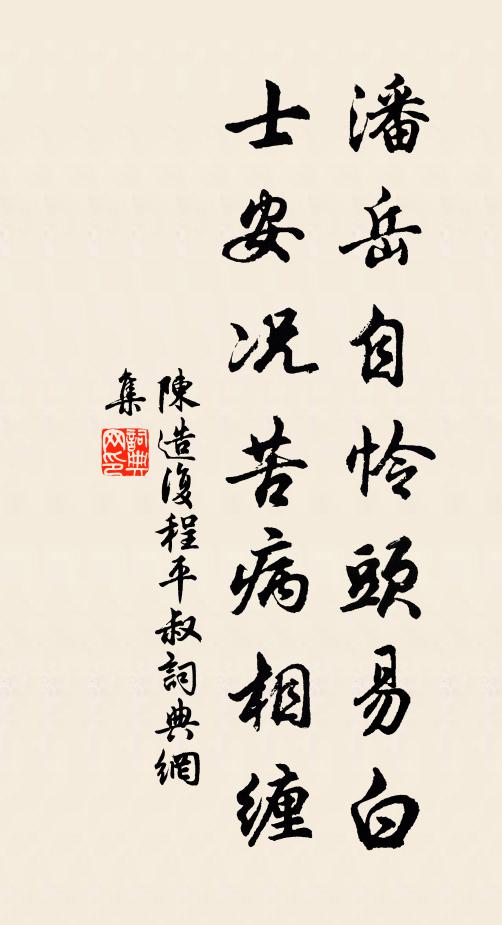 潘岳自怜頭易白
士安况苦病相缠
陳造復程平叔詞典網
集
詞典网印